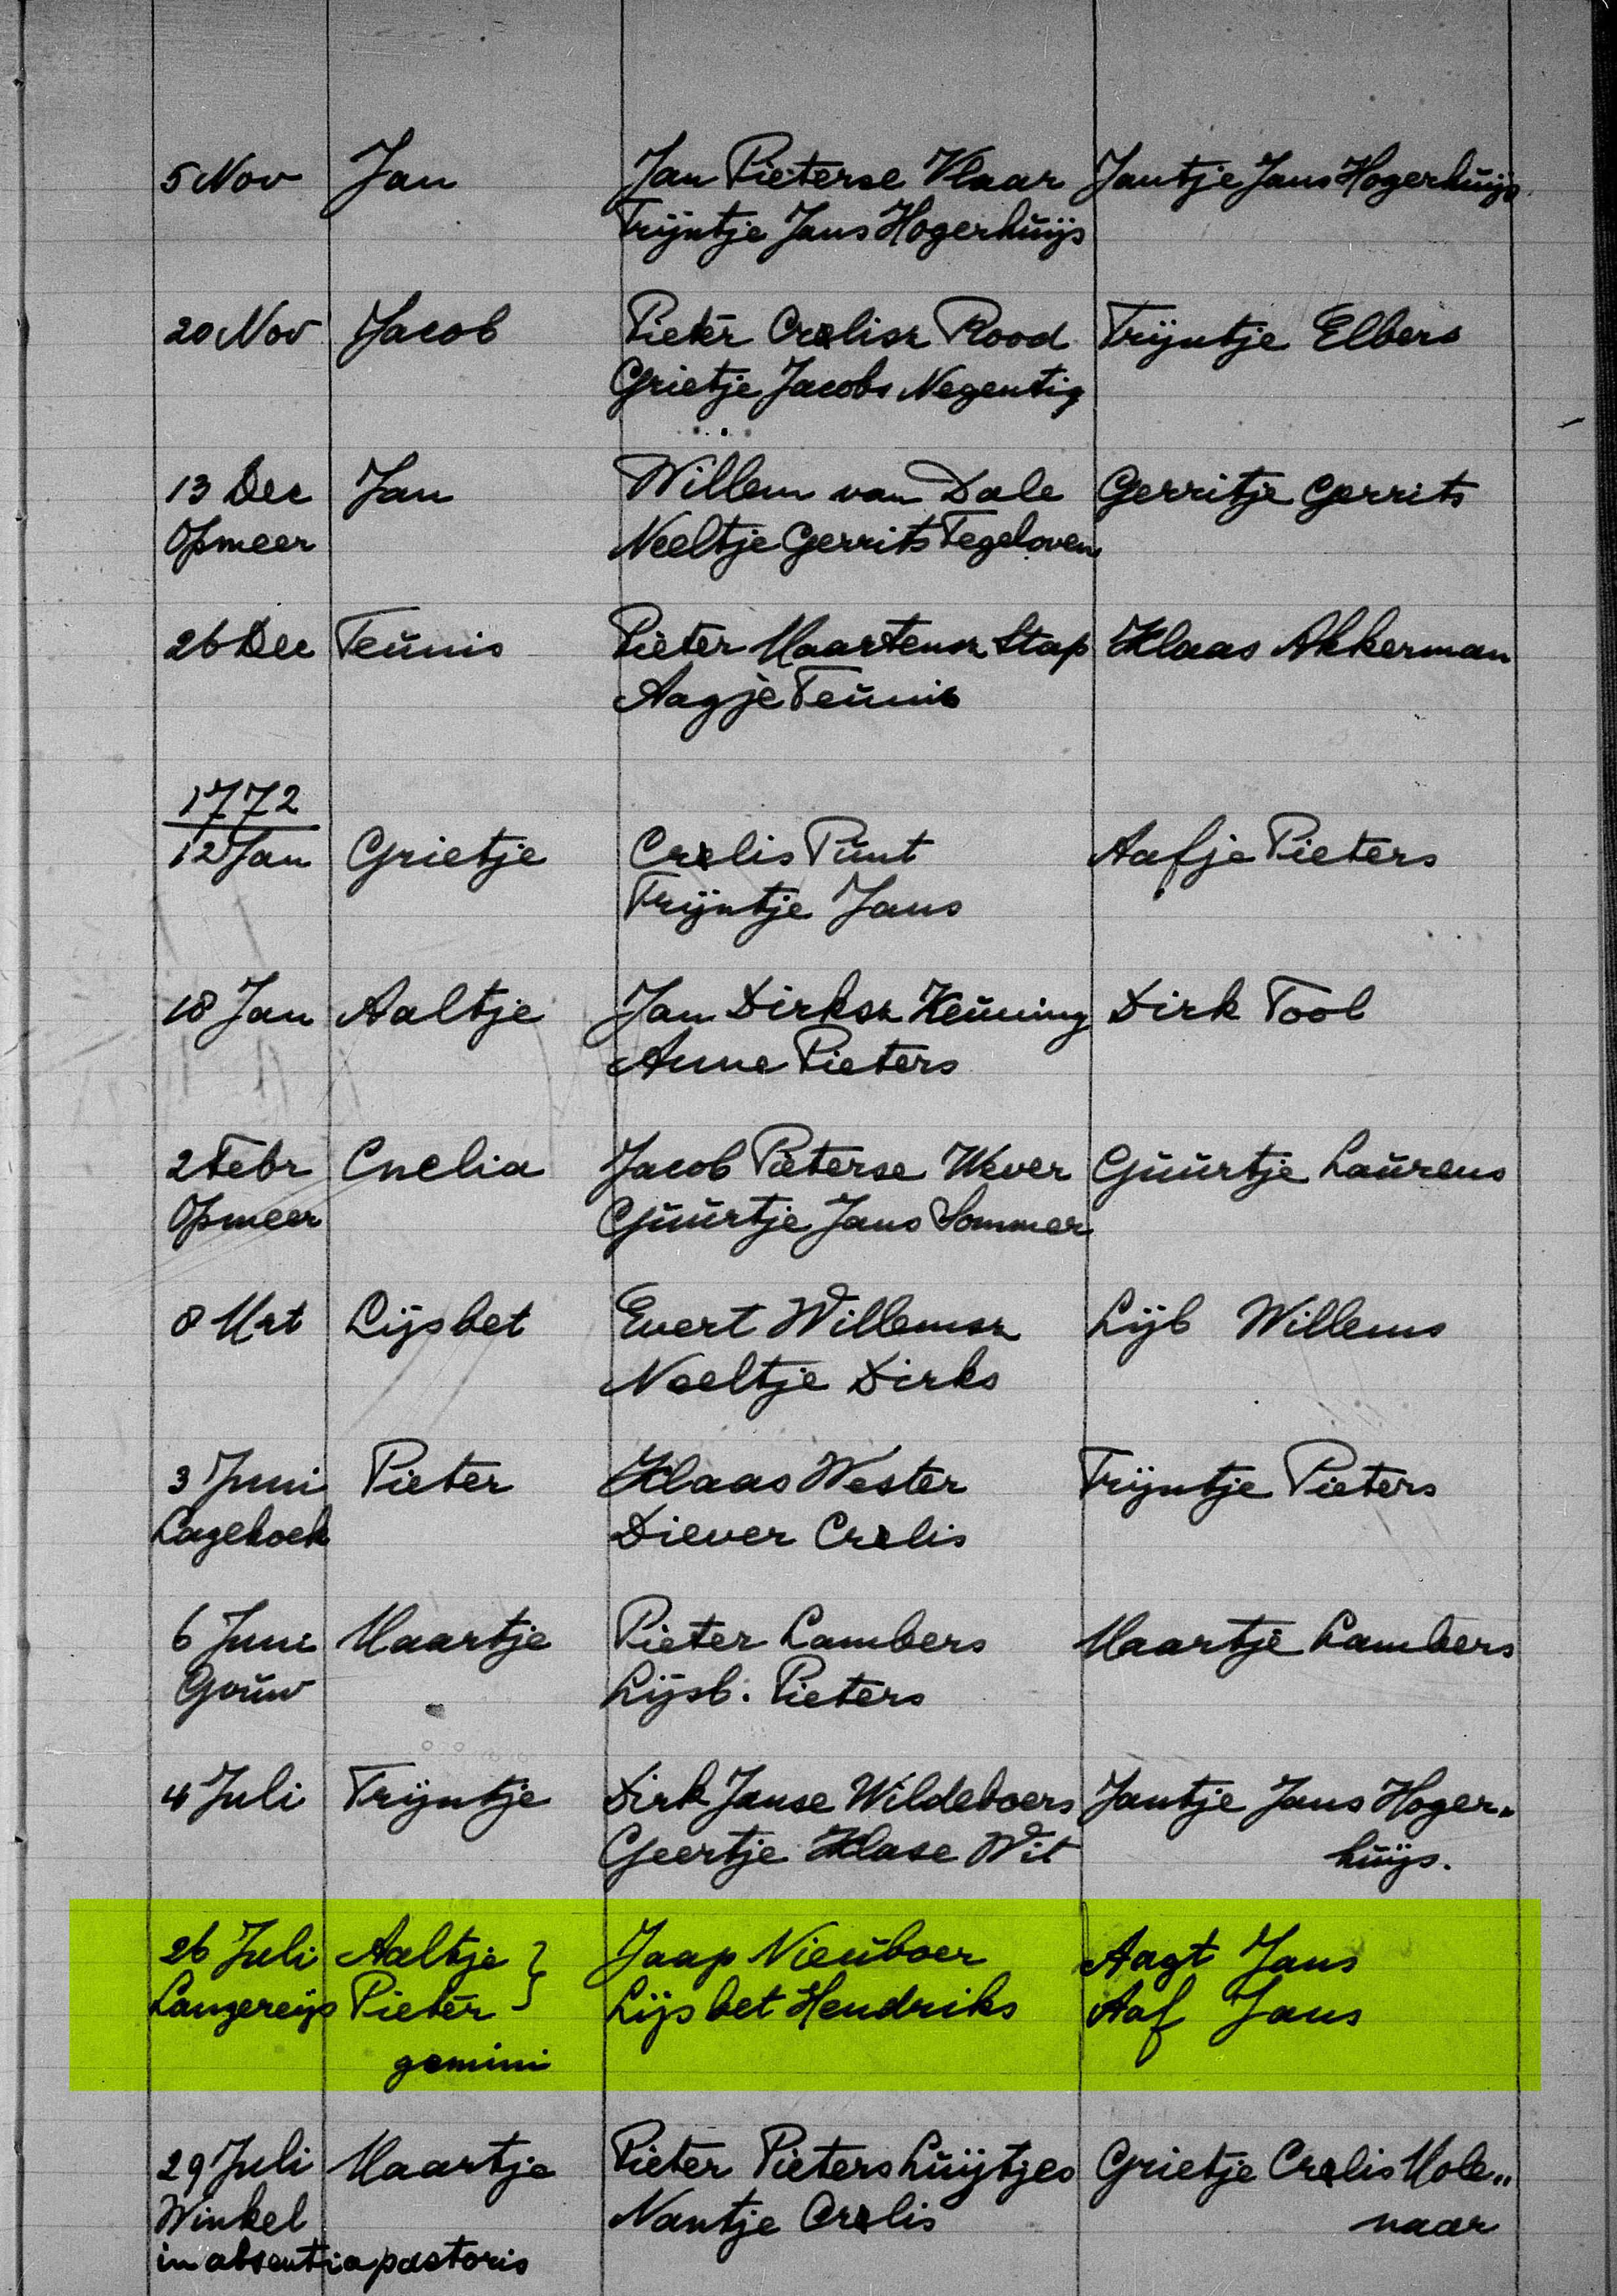 5 Nov Jan Jan Pieterse Vlaar Jantje Jans Hogerhuijs
Trijntje Jans Hogerhuijs
20 Nov Jacob Pieter Crelisz Rood Trijntje Elbers
Grietje Jacobs Negentig
13 Dec Jan Willem van Dale Gerritje Gerrits
Opmeer Neeltje Gerrits Tegeloven
26 Dec Teunis Pieter Maartensz Stap Klaas Akkerman
Aagje Teunis
1772
12 Jan Grietje Crelis Punt Aafje Pieters
Trijntje Jans
18 Jan Aaltje Jan Dirksz Keuning Dirk Tool
Anne Pieters
2 Febr Cnelia Jacob Pieterse Wever Guurtje Laurens
Opmeer Guurtje Jans Sommer
8 Mrt Lijsbet Evert Willemsz Lijb Willems
Neeltje Dirks
3 Juni Pieter Klaas Wester Trijntje Pieters
Lagehoek Diever Crelis
6 Juni Maartje Pieter Lambers Maartje Lambers
Gouw Lijsb. Pieters
4 Juli Trijntje Dirk Janse Wildeboers Jantje Jans Hoger„
Geertje Klase Wit huijs.
26 Juli Aaltje } Jaap Nieuboer Aagt Jans
Langereijs Pieter Lijsbet Hendriks Aaf Jans
gemini
29 Juli Maartje Pieter Pieters Luijtjes Grietje Crelis Mole„
Winkel Nantje Crelis naar
in absentia pastoris